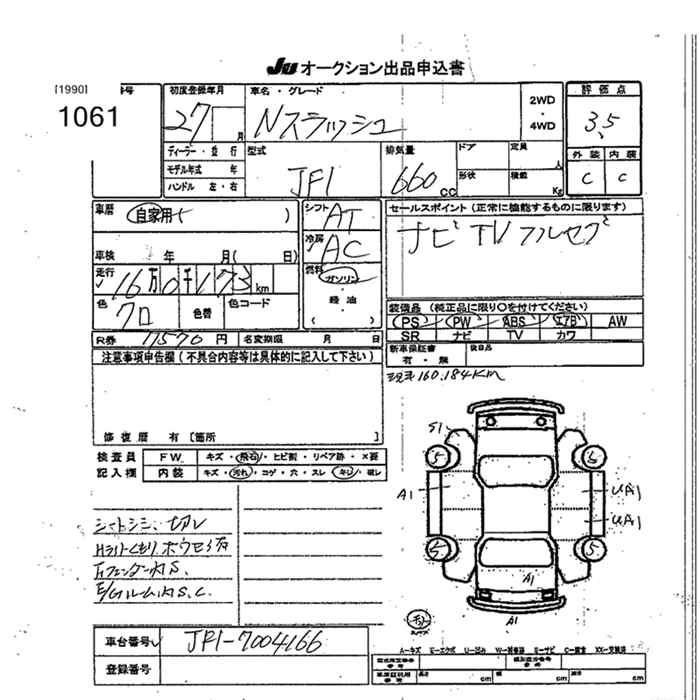 JU オークション出品申込書
[1990] 号
1061
初度登録年月
27 月
車名・グレード
Nスラッシュ
2WD
・
4WD
評価点
3.5
ディーラー・並行
モデル年式 年
ハンドル 左・右
型式
JF1
排気量
660 cc
ドア
定員 人
形状
積載 Kg
外装 内装
C C
車歴 自家用 )
車検 年 月( 日)
走行 16万0千173 km
色 クロ 色替 色コード
シフト AT
冷房 AC
燃料 ガソリン
・
軽油
・
( )
セールスポイント (正常に機能するものに限ります)
ナビ TV フルセグ
装備品 (純正品に限り○を付けてください)
PS PW ABS エアB AW
SR ナビ TV カワ
R券 11570 円 名変期限 月 日
新車保証書
有・無
後日品
注意事項申告欄(不具合内容等は具体的に記入して下さい)
現走160,184KM
修復歴 有 [箇所 ]
検査員 FW キズ・飛石・ヒビ割・リペア跡・X要
記入欄 内装 キズ・汚れ・コゲ・穴・スレ・キレ・破レ
S1
A1
UA1
UA1
5 5 5 5
A1
A1
シートシミ、切レ
Hライトくもり ホウセキ有
S.
S.C.
車台番号 JF1-7004166
登録番号
A-キズ U-エクボ W-補修跡 S-サビ C-腐食 XX-交換済
長さ cm 幅 cm 高さ cm